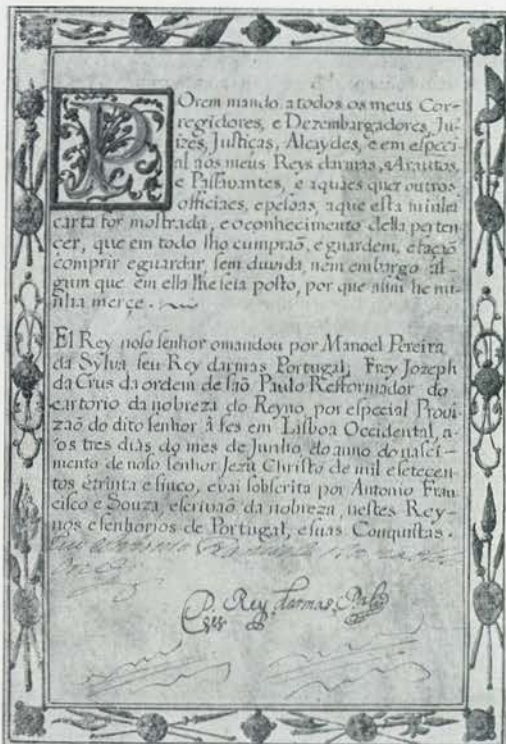 POrem mando atodos os meus Cor-
regidores, e Dezembargadores, Ju-
izes, Justiças, Alcaydes, e em especi-
al aos meus Reys darmas, Arautos,
e Passavantes, e aquaes quer outros
officiaes, e pesoas, aque esta minha
carta for mostrada, e o conhecimento della perten
cer, que em todo lho cumpraõ, e guardem, e façaõ
comprir eguardar, sem duvida, nem embargo al-
gum que em ella lhe seia posto, por que assi he mi-
nha merçe.
El Rey noso senhor omandou por Manoel Pereira
da Sylva seu Rey darmas Portugal; Frey Jozeph
da Crus da ordem de saõ Paulo Refformador do
cartorio da nobreza do Reyno, por especial Provi-
zaõ do dito senhor â fes em Lisboa Occidental, a-
os tres dias do mes de Junho, do anno do nasci-
mento de noso senhor Jezu Christo de mil esetecen-
tos etrinta e sinco, evai sobscrita por Antonio Fran-
cisco e Souza, escrivaõ da nobreza, nestes Rey-
nos esenhorios de Portugal, esuas Conquistas.
P. Rey darmas